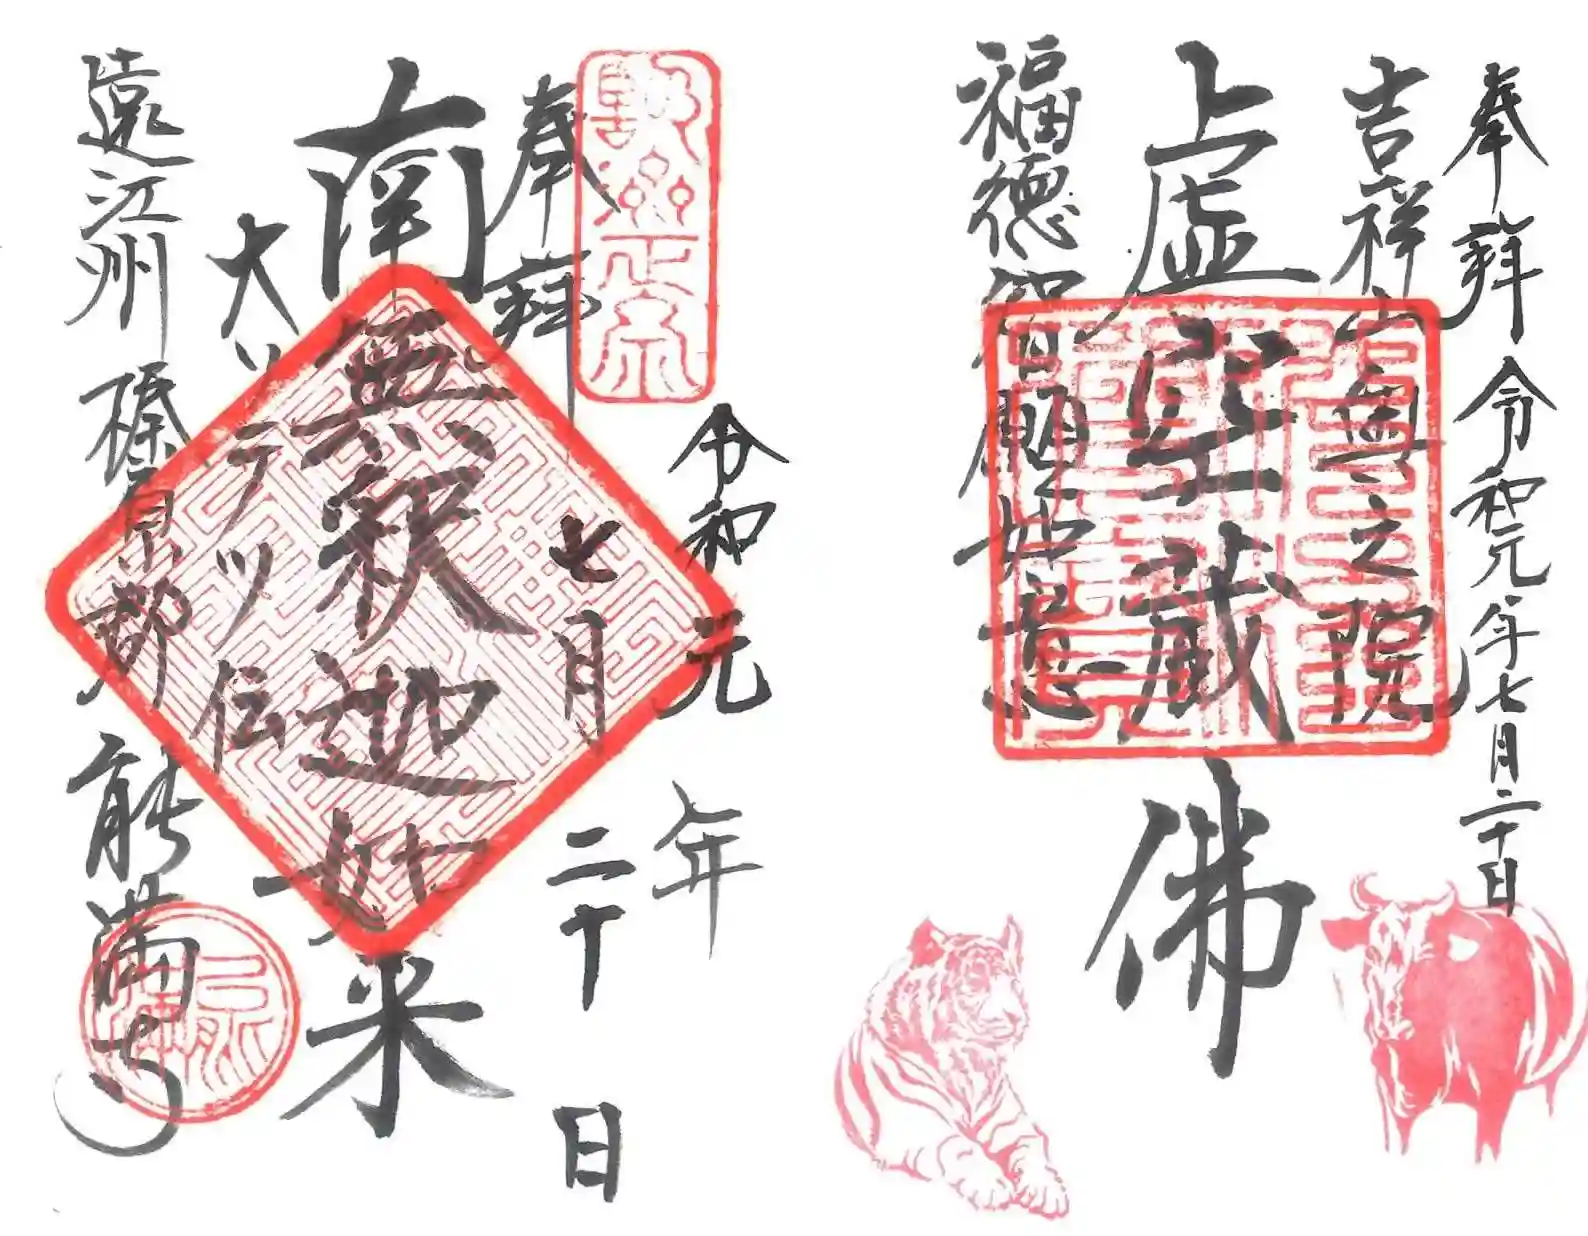 奉拝 令和元年七月二十日
吉祥山奥之院
虚空蔵佛
福徳智願如意
令和元年
奉拝 七月二十日
南無釈迦如来
大ソテツ伝
遠江州榛原郡能満寺